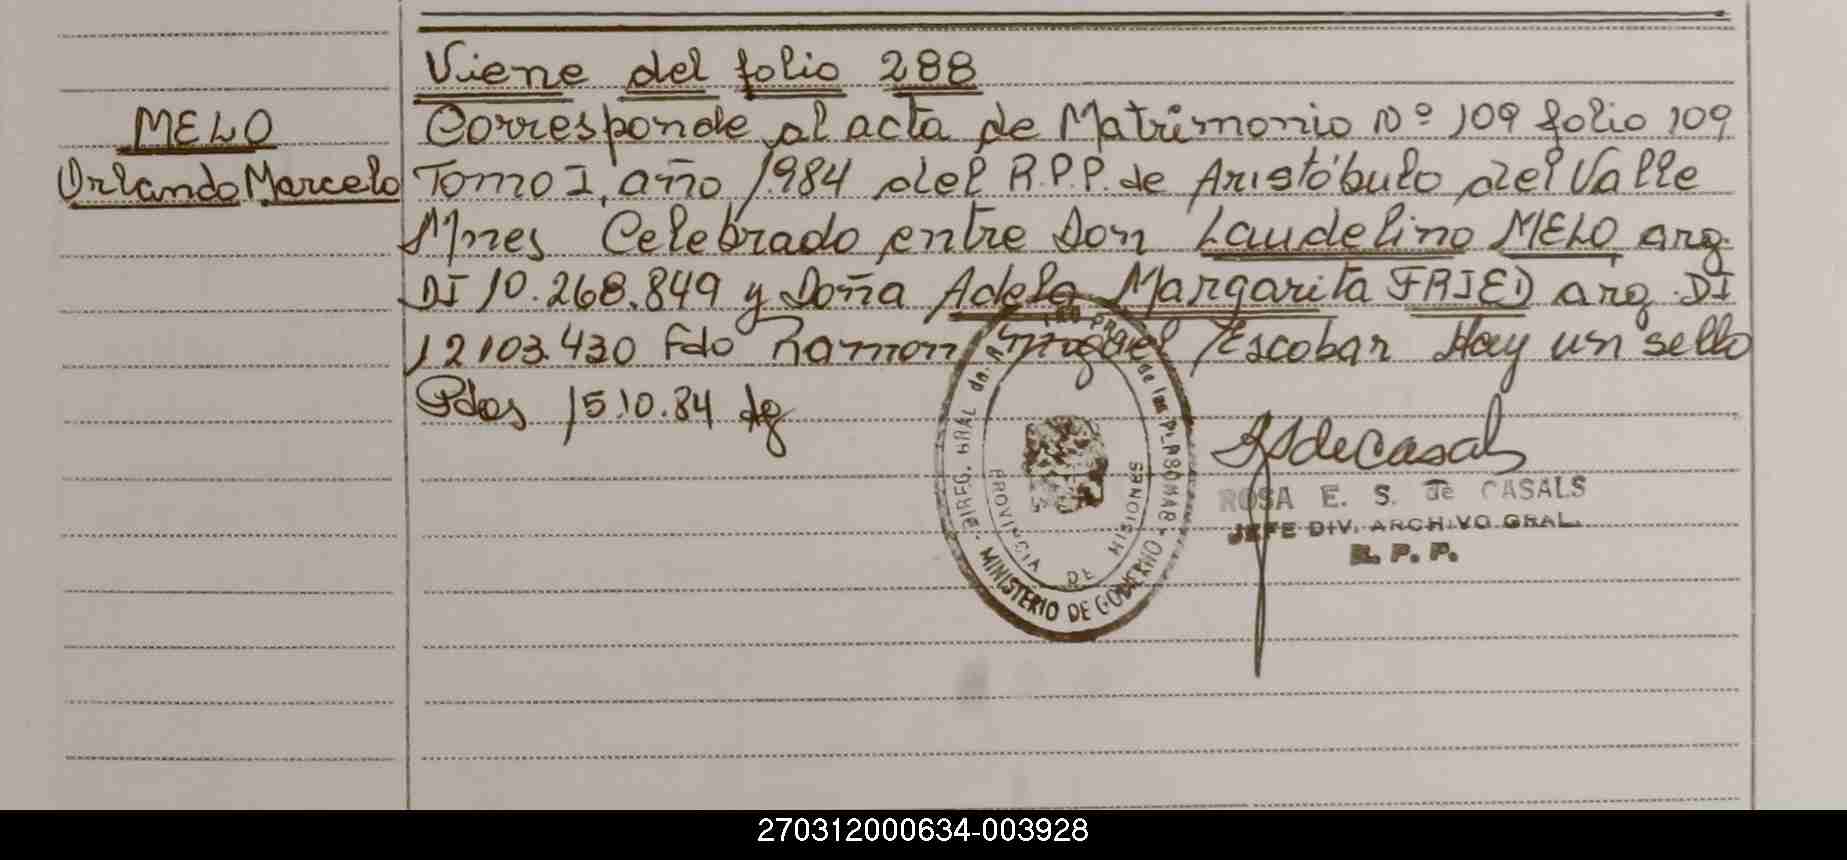 Viene del folio 288
MELO
Orlando Marcelo
Corresponde al acta de Matrimonio Nº 109 folio 109
Tomo I, año 1984 del R.P.P. de Aristóbulo del Valle
Mnes Celebrado entre Don Laudelino MELO arg.
DI 10.268.849 y Doña Adela Margarita FRIED arg. DI
12103.430 Fdo Ramon Miguel Escobar Hay un sello
Pdas 15.10.84
DIREG. GRAL de PROV de las PERSONAS
MINISTERIO DE GOBIERNO
PROVINCIA DE MISIONES
RSdeCasals
ROSA E. S. de CASALS
JEFE DIV. ARCHIVO GRAL.
R. P. P.
270312000634-003928